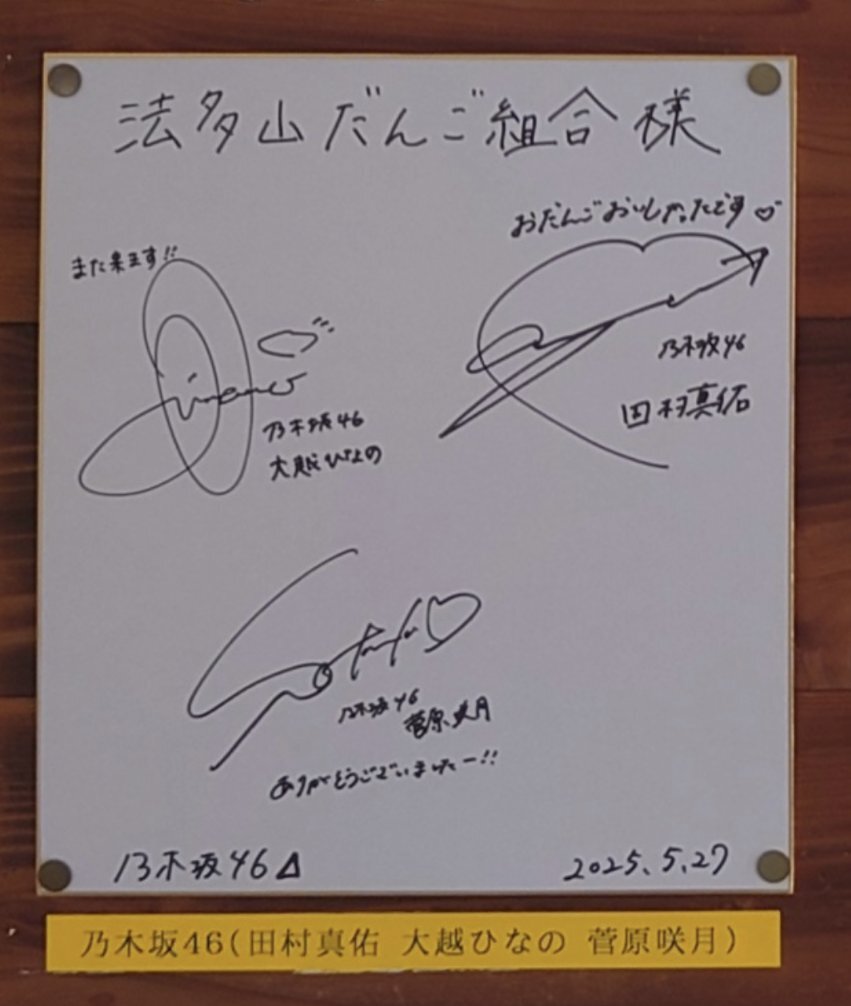 法多山だんご組合様
おだんごおいしかったです♡
また来ます!!
乃木坂46
田村真佑
乃木坂46
大越ひなの
乃木坂46
菅原咲月
ありがとうございましたー!!
乃木坂46
2025.5.27
乃木坂46(田村真佑 大越ひなの 菅原咲月)